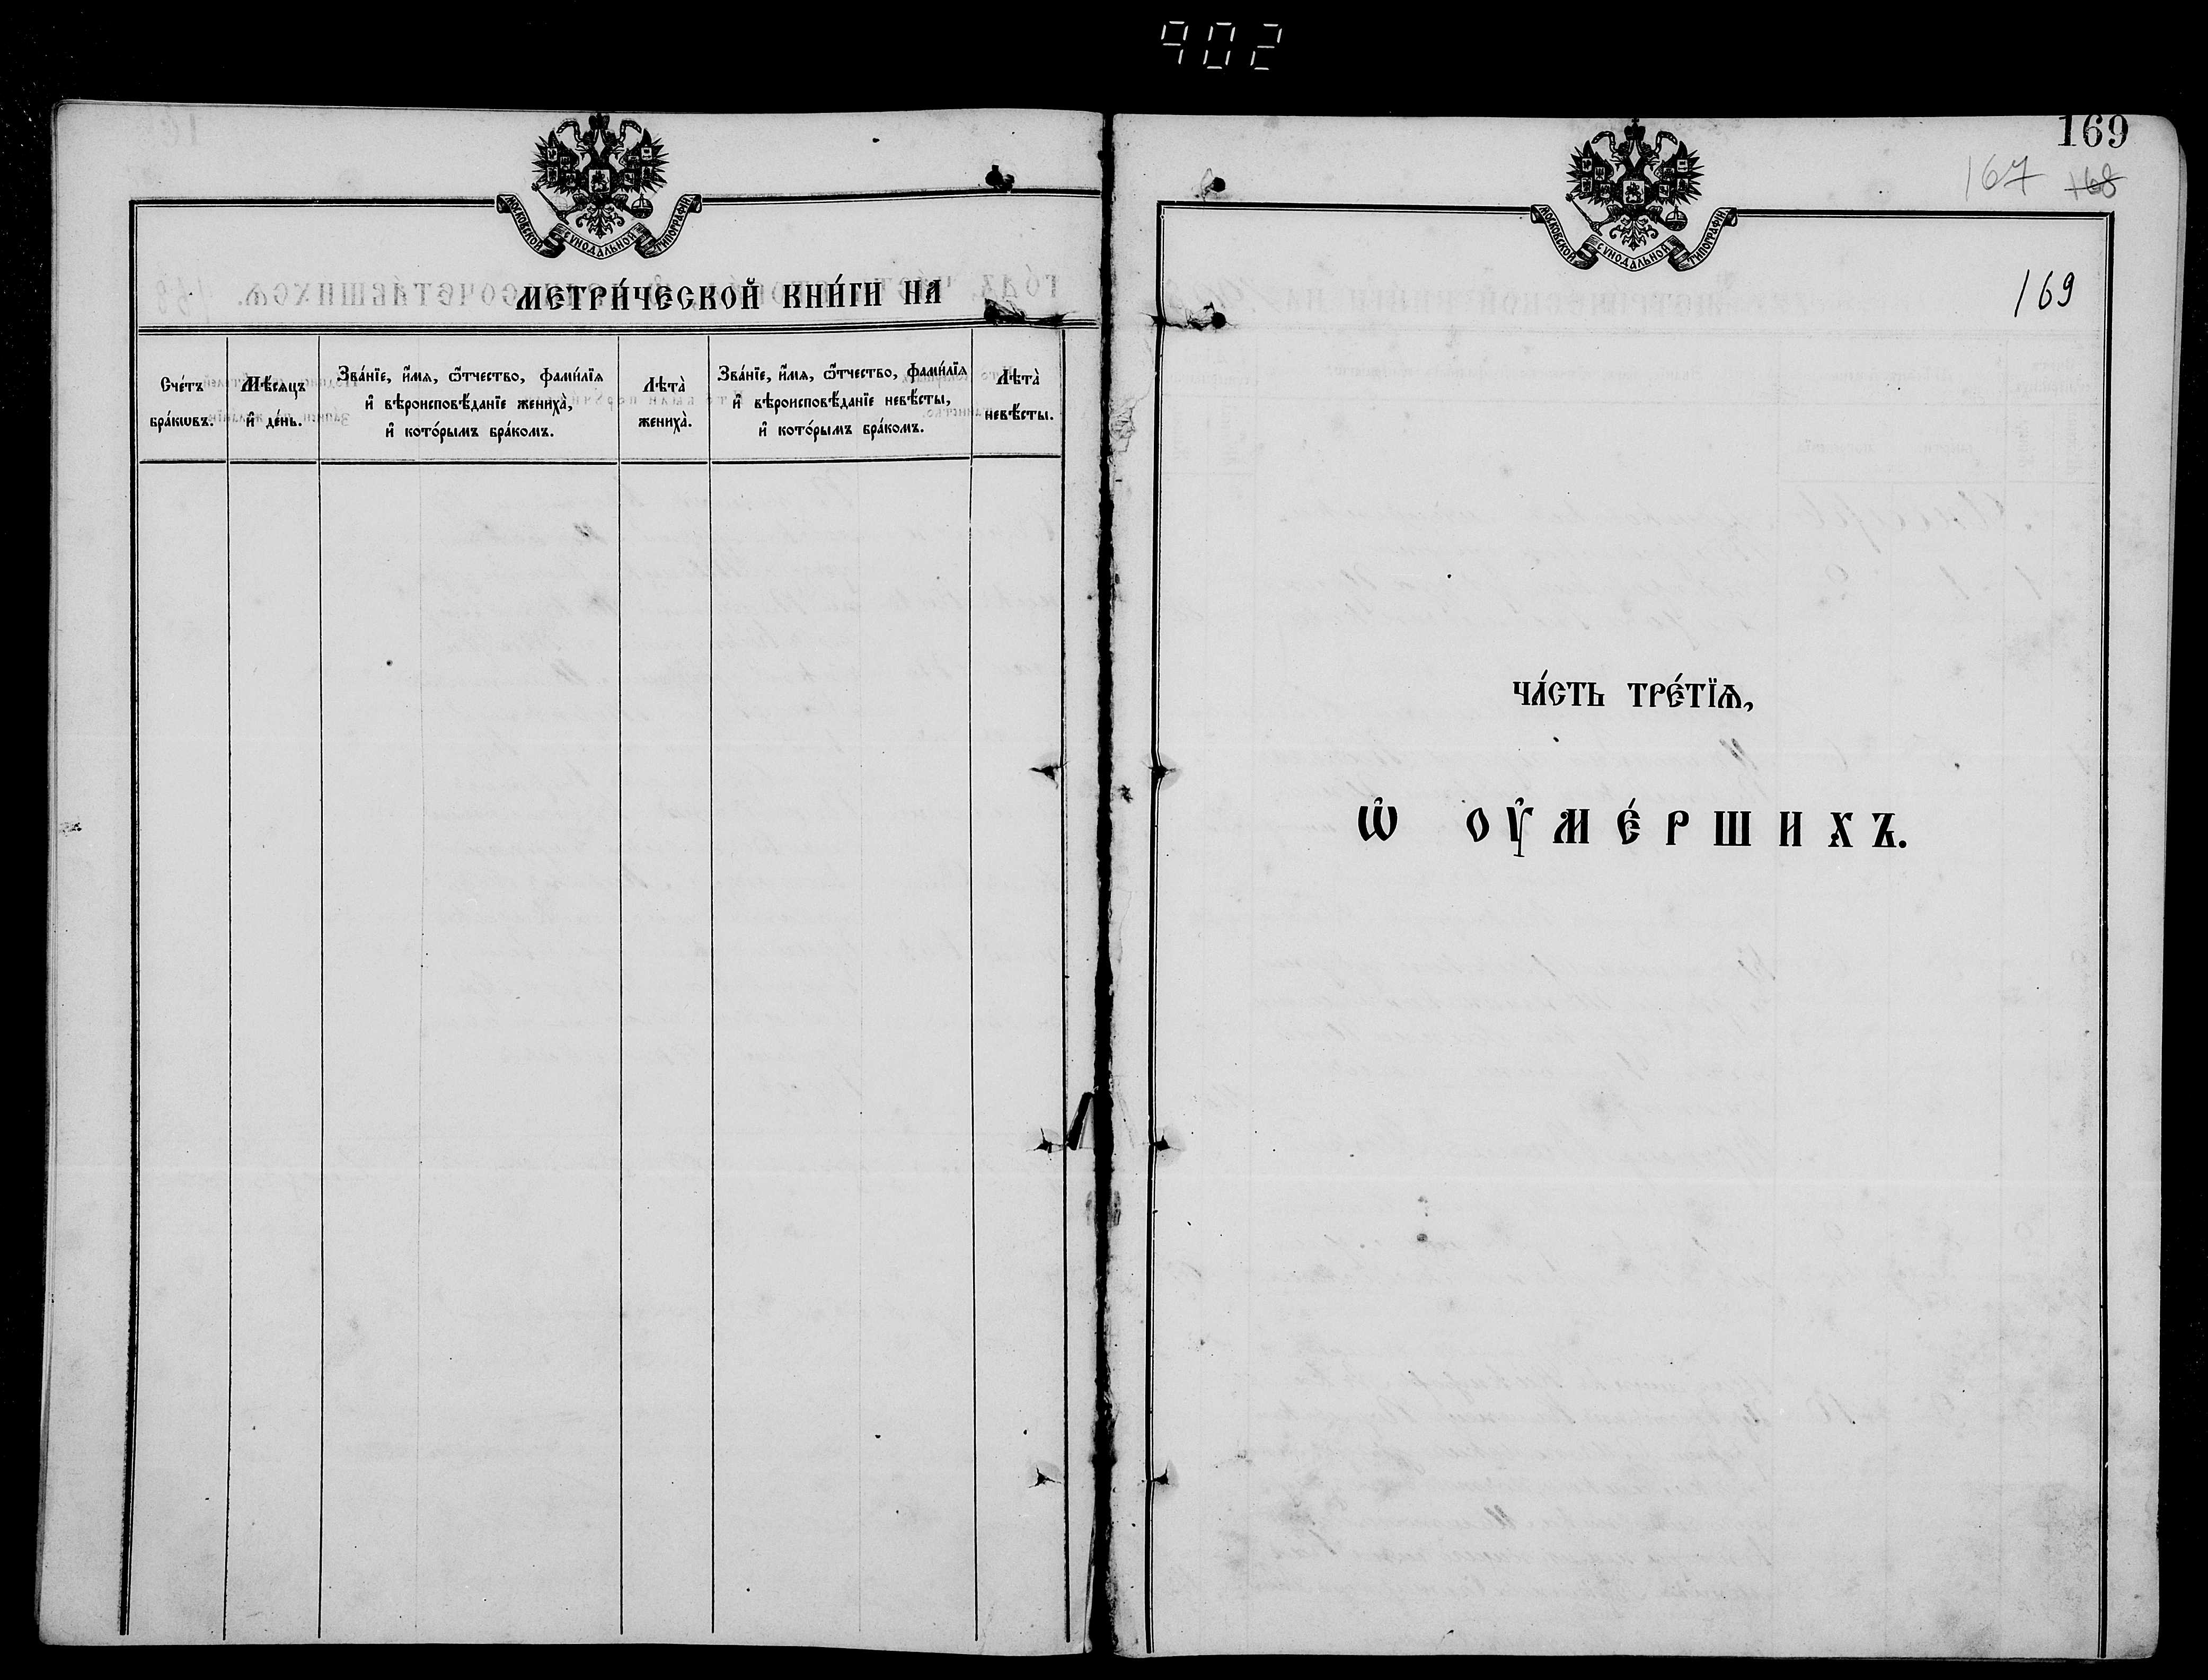 902
МОСКОВСКОЙ СѴНОДАЛЬНОЙ ТИПОГРАФІИ.
МЕТРИ́ЧЕСКОЙ КНИ́ГИ НА
Сче́тъ
бра́кѡвъ.
Мѣ́сяцъ
и҆ де́нь.
Зва́нїе, и҆́мя, ѻ҆́тчество, фами́лїя
и҆ вѣроисповѣ́данїе жениха̀,
и҆ кото́рымъ бра́комъ.
Лѣта̀
жениха̀.
Зва́нїе, и҆́мя, ѻ҆́тчество, фами́лїя
и҆ вѣроисповѣ́данїе невѣ́сты,
и҆ кото́рымъ бра́комъ.
Лѣта̀
невѣ́сты.
169
167 168
МОСКОВСКОЙ СѴНОДАЛЬНОЙ ТИПОГРАФІИ.
169
ЧА́СТЬ ТРЕ́ТЇѦ,
Ѡ҆ ОУ҆МЕ́РШИХЪ.